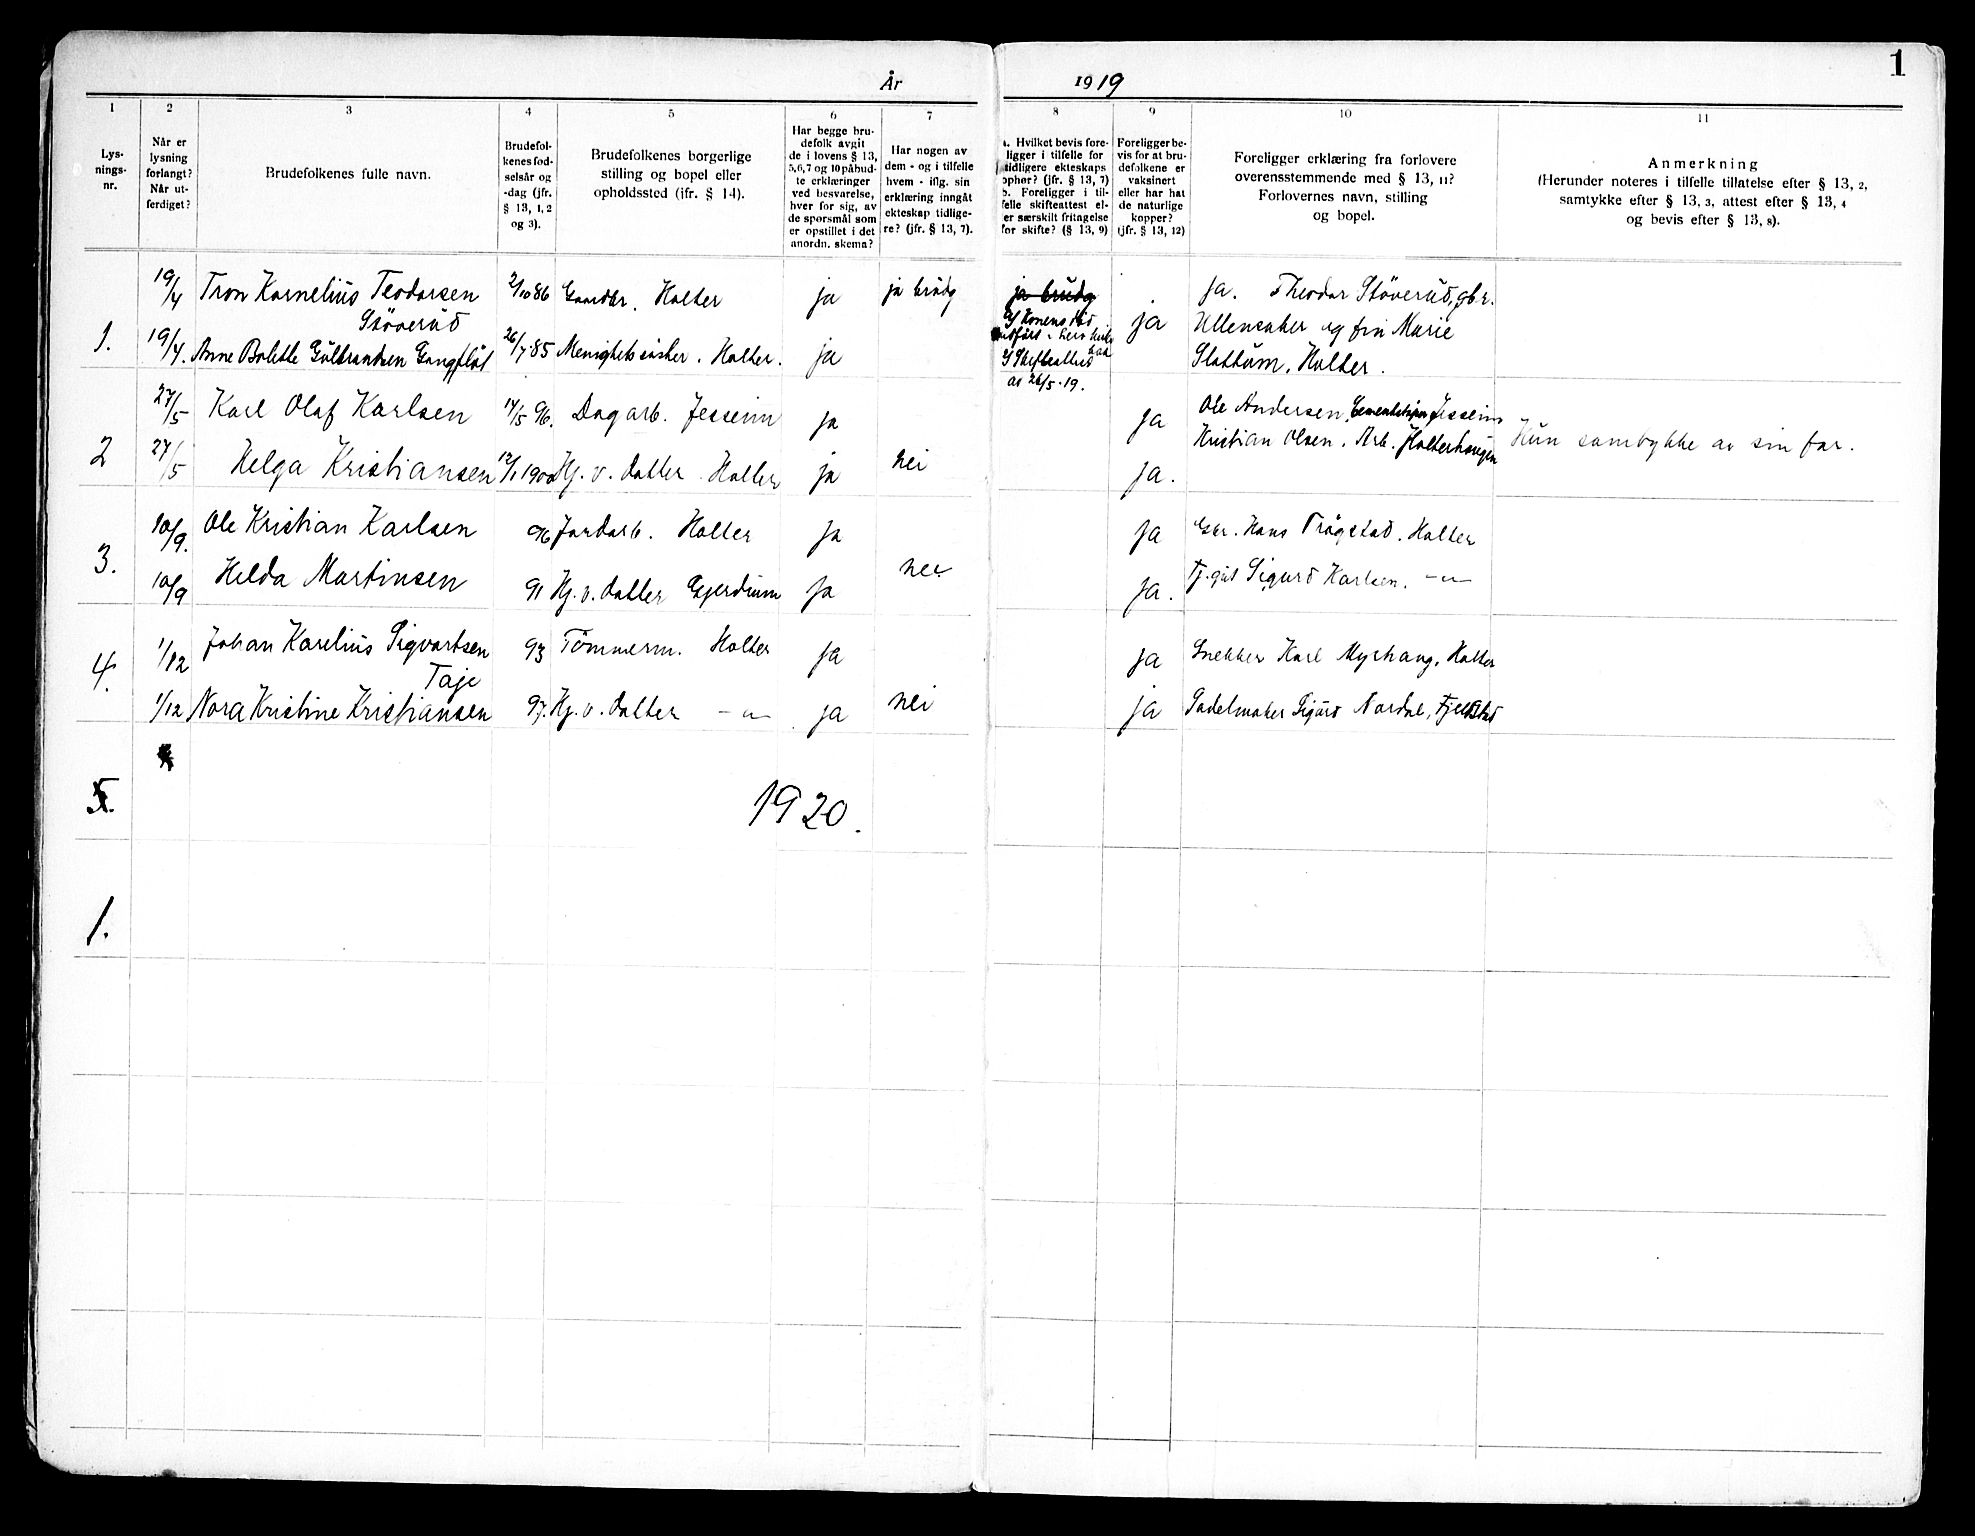 År
1919
1
1
2
3
4
5
6
7
8
9
10
11
Lys-
nings-
nr.
Når er
lysning
forlangt?
Når ut-
ferdiget?
Brudefolkenes fulle navn.
Brudefol-
kenes fød-
selsår og
-dag (jfr.
§ 13, 1, 2
og 3).
Brudefolkenes borgerlige
stilling og bopel eller
opholdssted (jfr. § 14).
Har begge bru-
defolk avgit
de i lovens § 13,
5,6,7 og 10 påbud-
te erklæringer
ved besvarelse,
hver for sig, av
de spørsmål som
er opstillet i det
anordn. skema?
Har nogen av
dem - og i tilfelle
hvem - iflg. sin
erklæring inngåt
ekteskap tidlige-
re? (jfr. § 13, 7).
a. Hvilket bevis fore-
ligger i tilfelle for
tidligere ekteskaps
ophør? (jfr. § 13, 7)
b. Foreligger i til-
felle skifteattest el-
ler særskilt fritagelse
for skifte? (§ 13, 9)
Foreligger be-
vis for at bru-
defolkene er
vaksinert
eller har hat
de naturlige
kopper?
(jfr. § 13, 12)
Foreligger erklæring fra forlovere
overensstemmende med § 13, 11?
Forlovernes navn, stilling
og bopel.
Anmerkning
(Herunder noteres i tilfelle tillatelse efter § 13, 2,
samtykke efter § 13, 3, attest efter § 13, 4
og bevis efter § 13, 8).
19/4 Tron Kornelius Teodorsen 2/10 86 Gaardbr. Holter ja ja brudg ja brudg ja. Theodor Støverud, gbr.
Støverud
a/ Konens død
1. 19/4. Anne Bolette Gulbrandsen 26/7 85 Menighetssøster. Holter. ja ja Ullensaker og fru Marie
b/ Skifteattest Slattum, Holter.
av 26/5-19.
27/5 Karl Olaf Karlsen 14/5 96. Dagarb. Jesseim ja ja Ole Andersen, Jesseim
2 27/5 Helga Kristiansen 12/1 1900 Hj. v. datter Holter ja nei ja. Kristian Olsen, Arb. Holterhaugen Hun samtykke av sin far.
10/9. Ole Kristian Karlsen 96 Jordarb. Holter ja ja Gbr. Hans Trøgstad. Holter
3. 10/9 Helda Martinsen 91 Hj. v. datter Gjerdrum ja nei ja. Tj.gut Sigurd Karlsen. -"-
1/12 Johan Karelius Sigvartsen 93 Tømmerm. Holter ja ja Snekker Karl Myrhaug, Holter
Taje
4. 1/12 Nora Kristine Kristiansen 97. Hj. v. datter -"- ja nei ja Sadelmaker Sigurd Nordal, Fjellstad
5.
1920.
1.